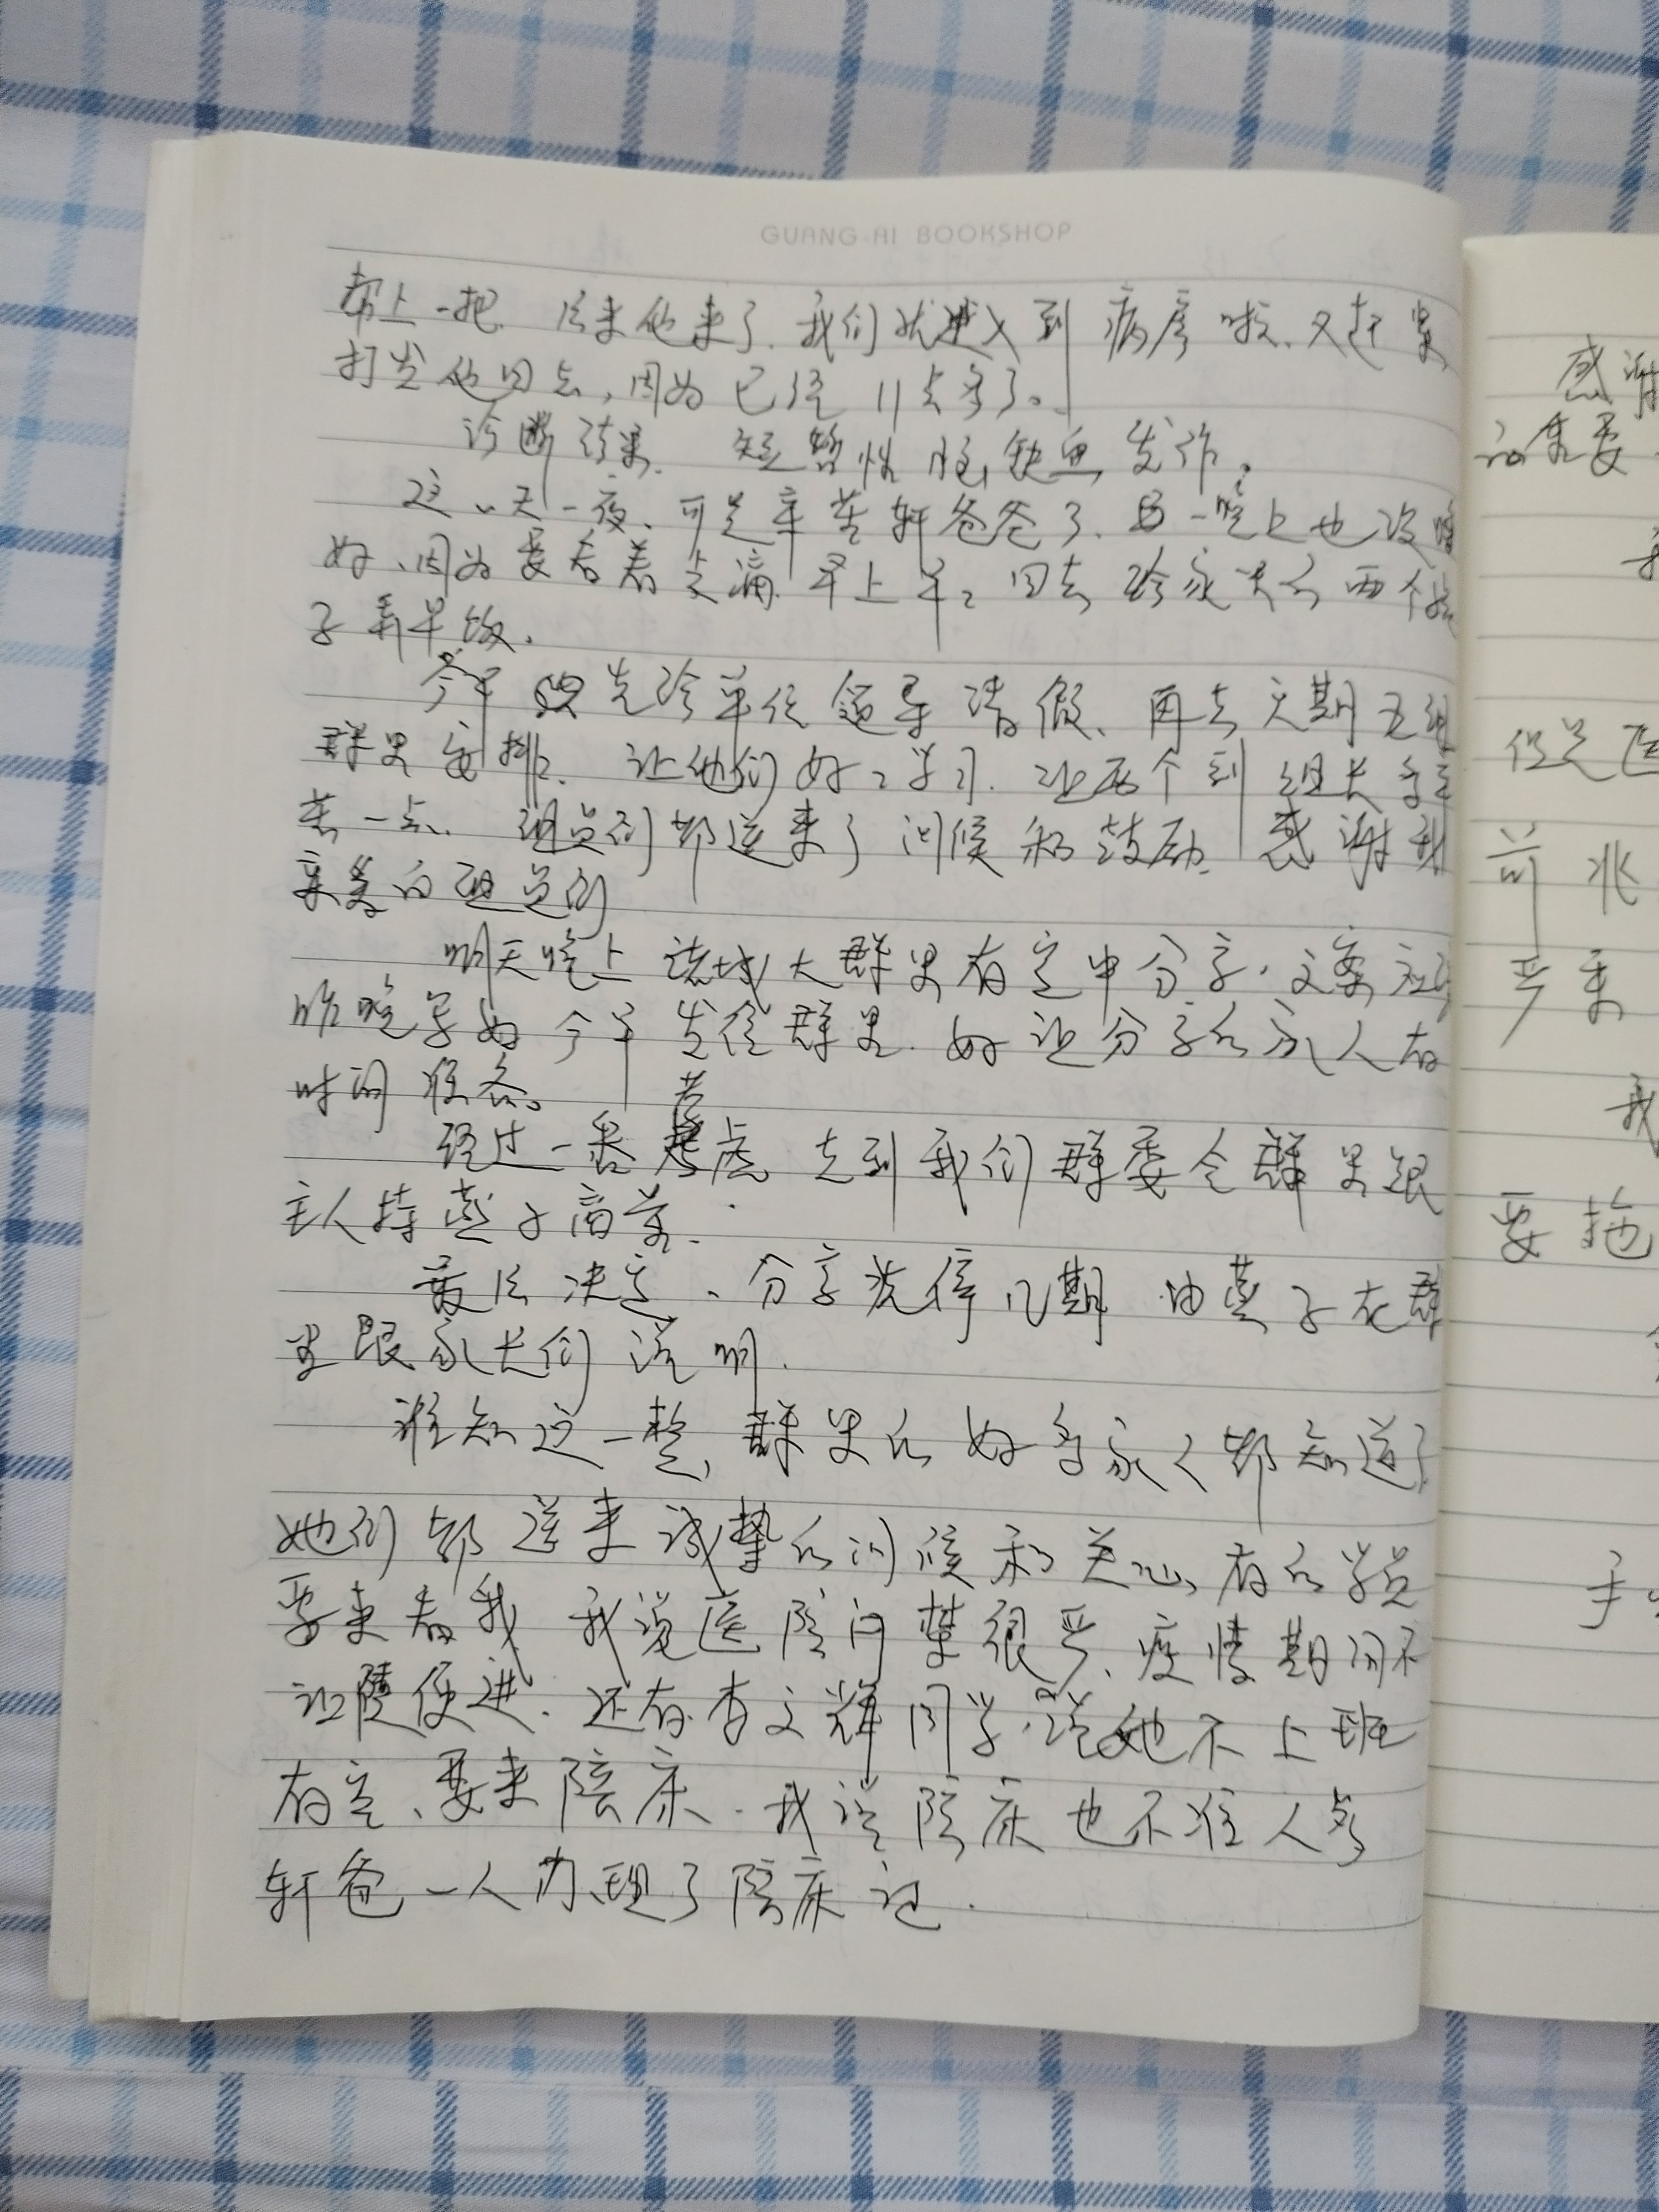 GUANG.AI BOOKSHOP
帮上一把. 后来他来了. 我们就进入到病房啦、又赶紧
打发他回去,因为已经11点多了。
诊断结果. 短暂性脑缺血发作.
这一天一夜、可是辛苦轩爸爸了、一晚上也没睡
好、因为要看着点滴. 早上早早回去给家里的两个孩
子弄早饭.
今早先给单位领导请假、再去六期五组
群里安排. 让他们好好学习. 让两个副组长辛
苦一点. 组员们都送来了问候和鼓励. 感谢我
亲爱的组员们
明天晚上该城大群里有空中分享. 文案
昨晚写好今早发给群里. 好让分享的家人有
时间准备。
经过一番考虑 先到我们群委会群里跟
主人持燕子商量.
最后决定、分享先停几期 由燕子在群
里跟家长们说明.
谁知这一整, 群里的好多家人都知道了
她们都送来诚挚的问候和关心, 有的学员
要来看我 我说医院门禁很严、疫情期间不
让随便进. 还有李文辉同学. 说她不上班
有空、要来陪床. 我说陪床也不准人多
轩爸一人办理了陪床证.
感谢
但是医
前兆
严重
我
要拖
手